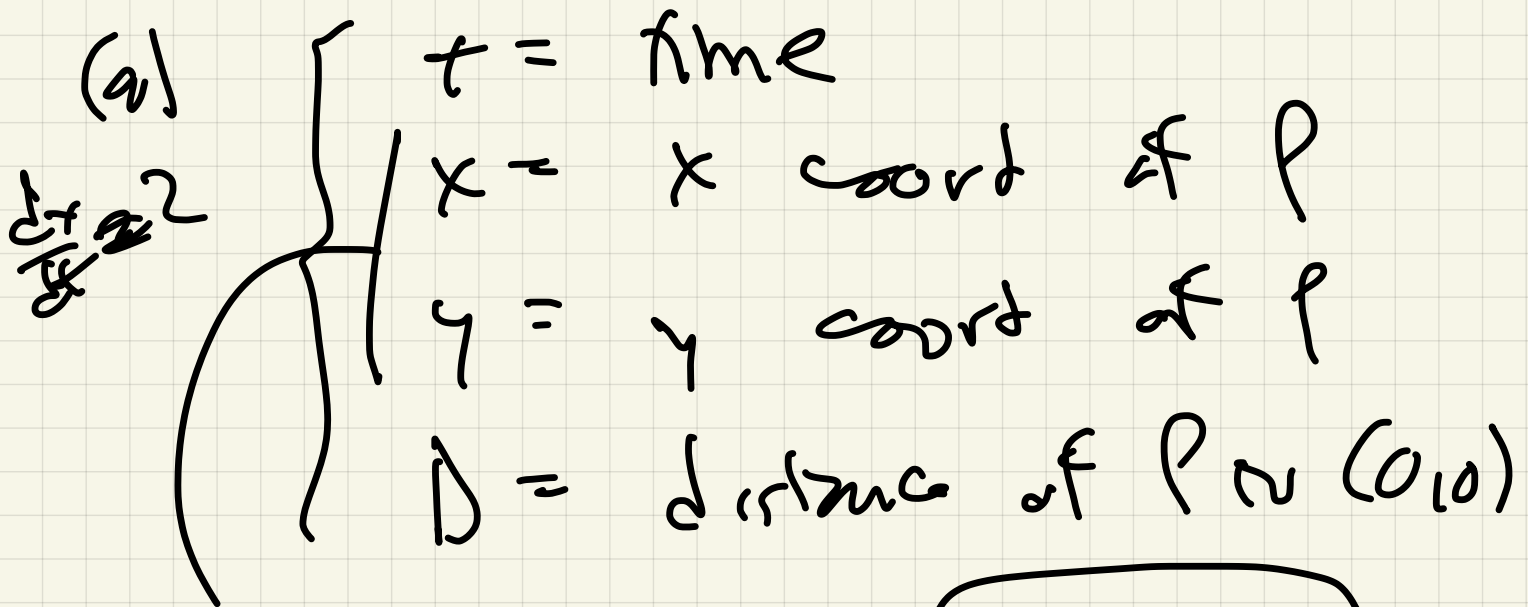 (a)
t = time
x = x coord of P
y = y coord of P
D = distance of P to (0,0)